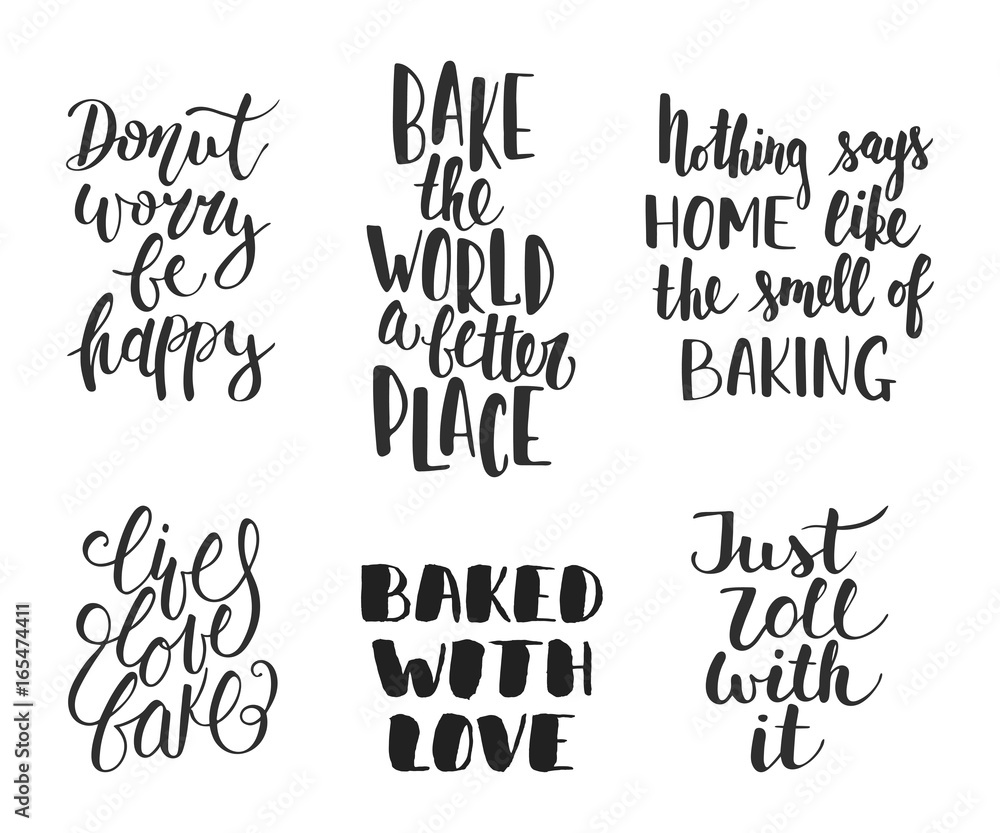 Donut
worry
be
happy
BAKE
the
WORLD
a better
PLACE
Nothing says
HOME like
the smell of
BAKING
live
love
bake
BAKED
WOTH
LOVE
Just
roll
with
it
Adobe Stock | #165474411